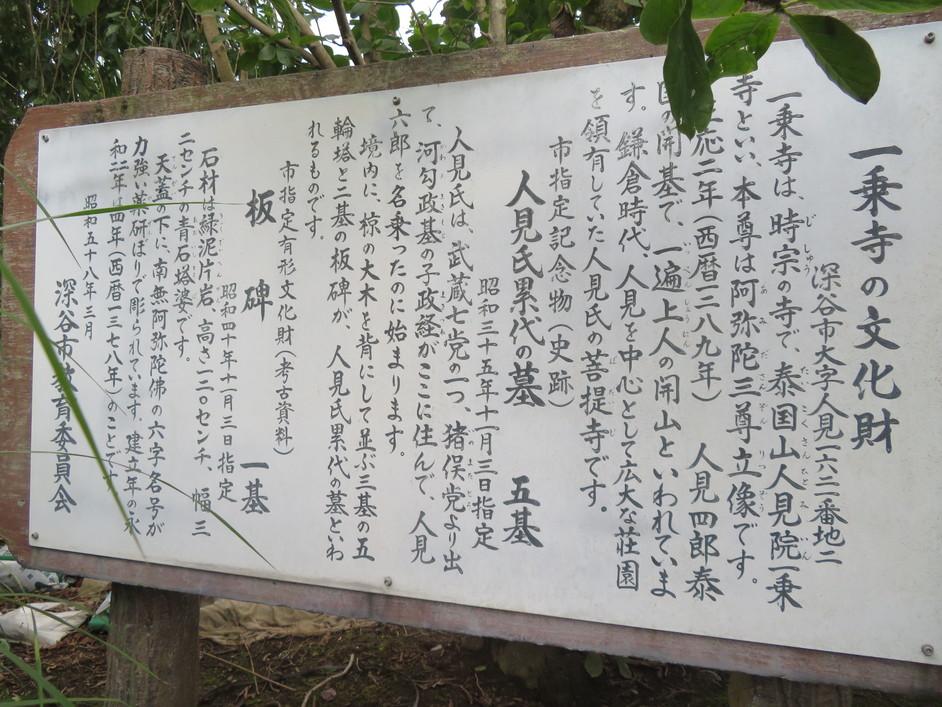 一乗寺の文化財
深谷市大字人見一六二一番地二
一乗寺は、時宗の寺で、泰国山人見院一乗
寺といい、本尊は阿弥陀三尊立像です。
応二年(西暦一二八九年) 人見四郎泰
の開基で、一遍上人の開山といわれていま
す。鎌倉時代、人見を中心として広大な荘園
を領有していた人見氏の菩提寺です。
市指定記念物(史跡)
人見氏累代の墓 五基
昭和三十五年十一月三日指定
人見氏は、武蔵七党の一つ、猪俣党より出
て、河匂政基の子政経がここに住んで、人見
六郎を名乗ったのに始まります。
境内に、椋の大木を背にして並ぶ三基の五
輪塔と二基の板碑が、人見氏累代の墓といわ
れるものです。
市指定有形文化財(考古資料)
板碑 一基
昭和四十年十一月三日指定
石材は緑泥片岩、高さ一二〇センチ、幅三
二センチの青石塔婆です。
天蓋の下に南無阿弥陀佛の六字名号が
力強い薬研ぼりで彫られています。建立年の永
和年は四年(西暦一三七八年)のことです
昭和五十八年三月
深谷市教育委員会